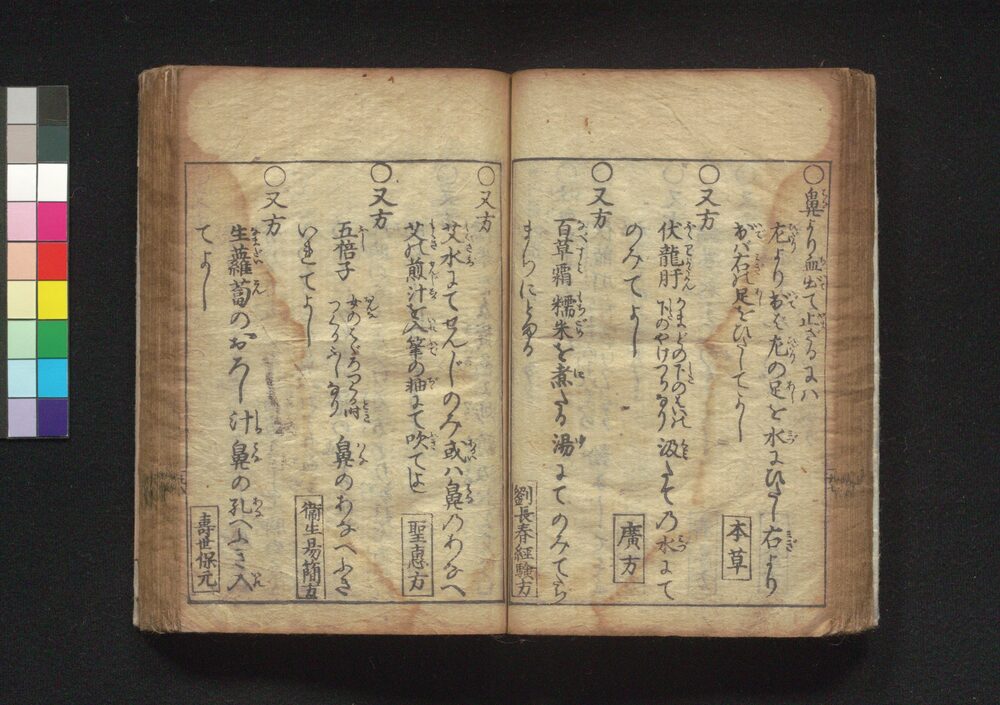 ○鼻より血出て止ざるには
左より出ば左の足を水にひたし右より
出バ右の足をひたしてよし
本草
○又方
伏龍肝 かまどの下の 下のやけつちなり 汲たての水にて
のみてよし
廣方
○又方
百草霜 糯米を煮たる湯にてのみてたち
まちにとまる
劉長春經験方
○又方
艾水にてせんじのみ或ハ鼻のあなへ
艾の煎汁を入筆の軸にて吹てよし
聖惠方
○又方
五棓子 女のはぐろつくる時 つくるふしなり 鼻のあなへふき
いれてよし
衞生易簡方
○又方
生蘿蔔のおろし汁鼻の孔へふき入
てよし
壽世保元